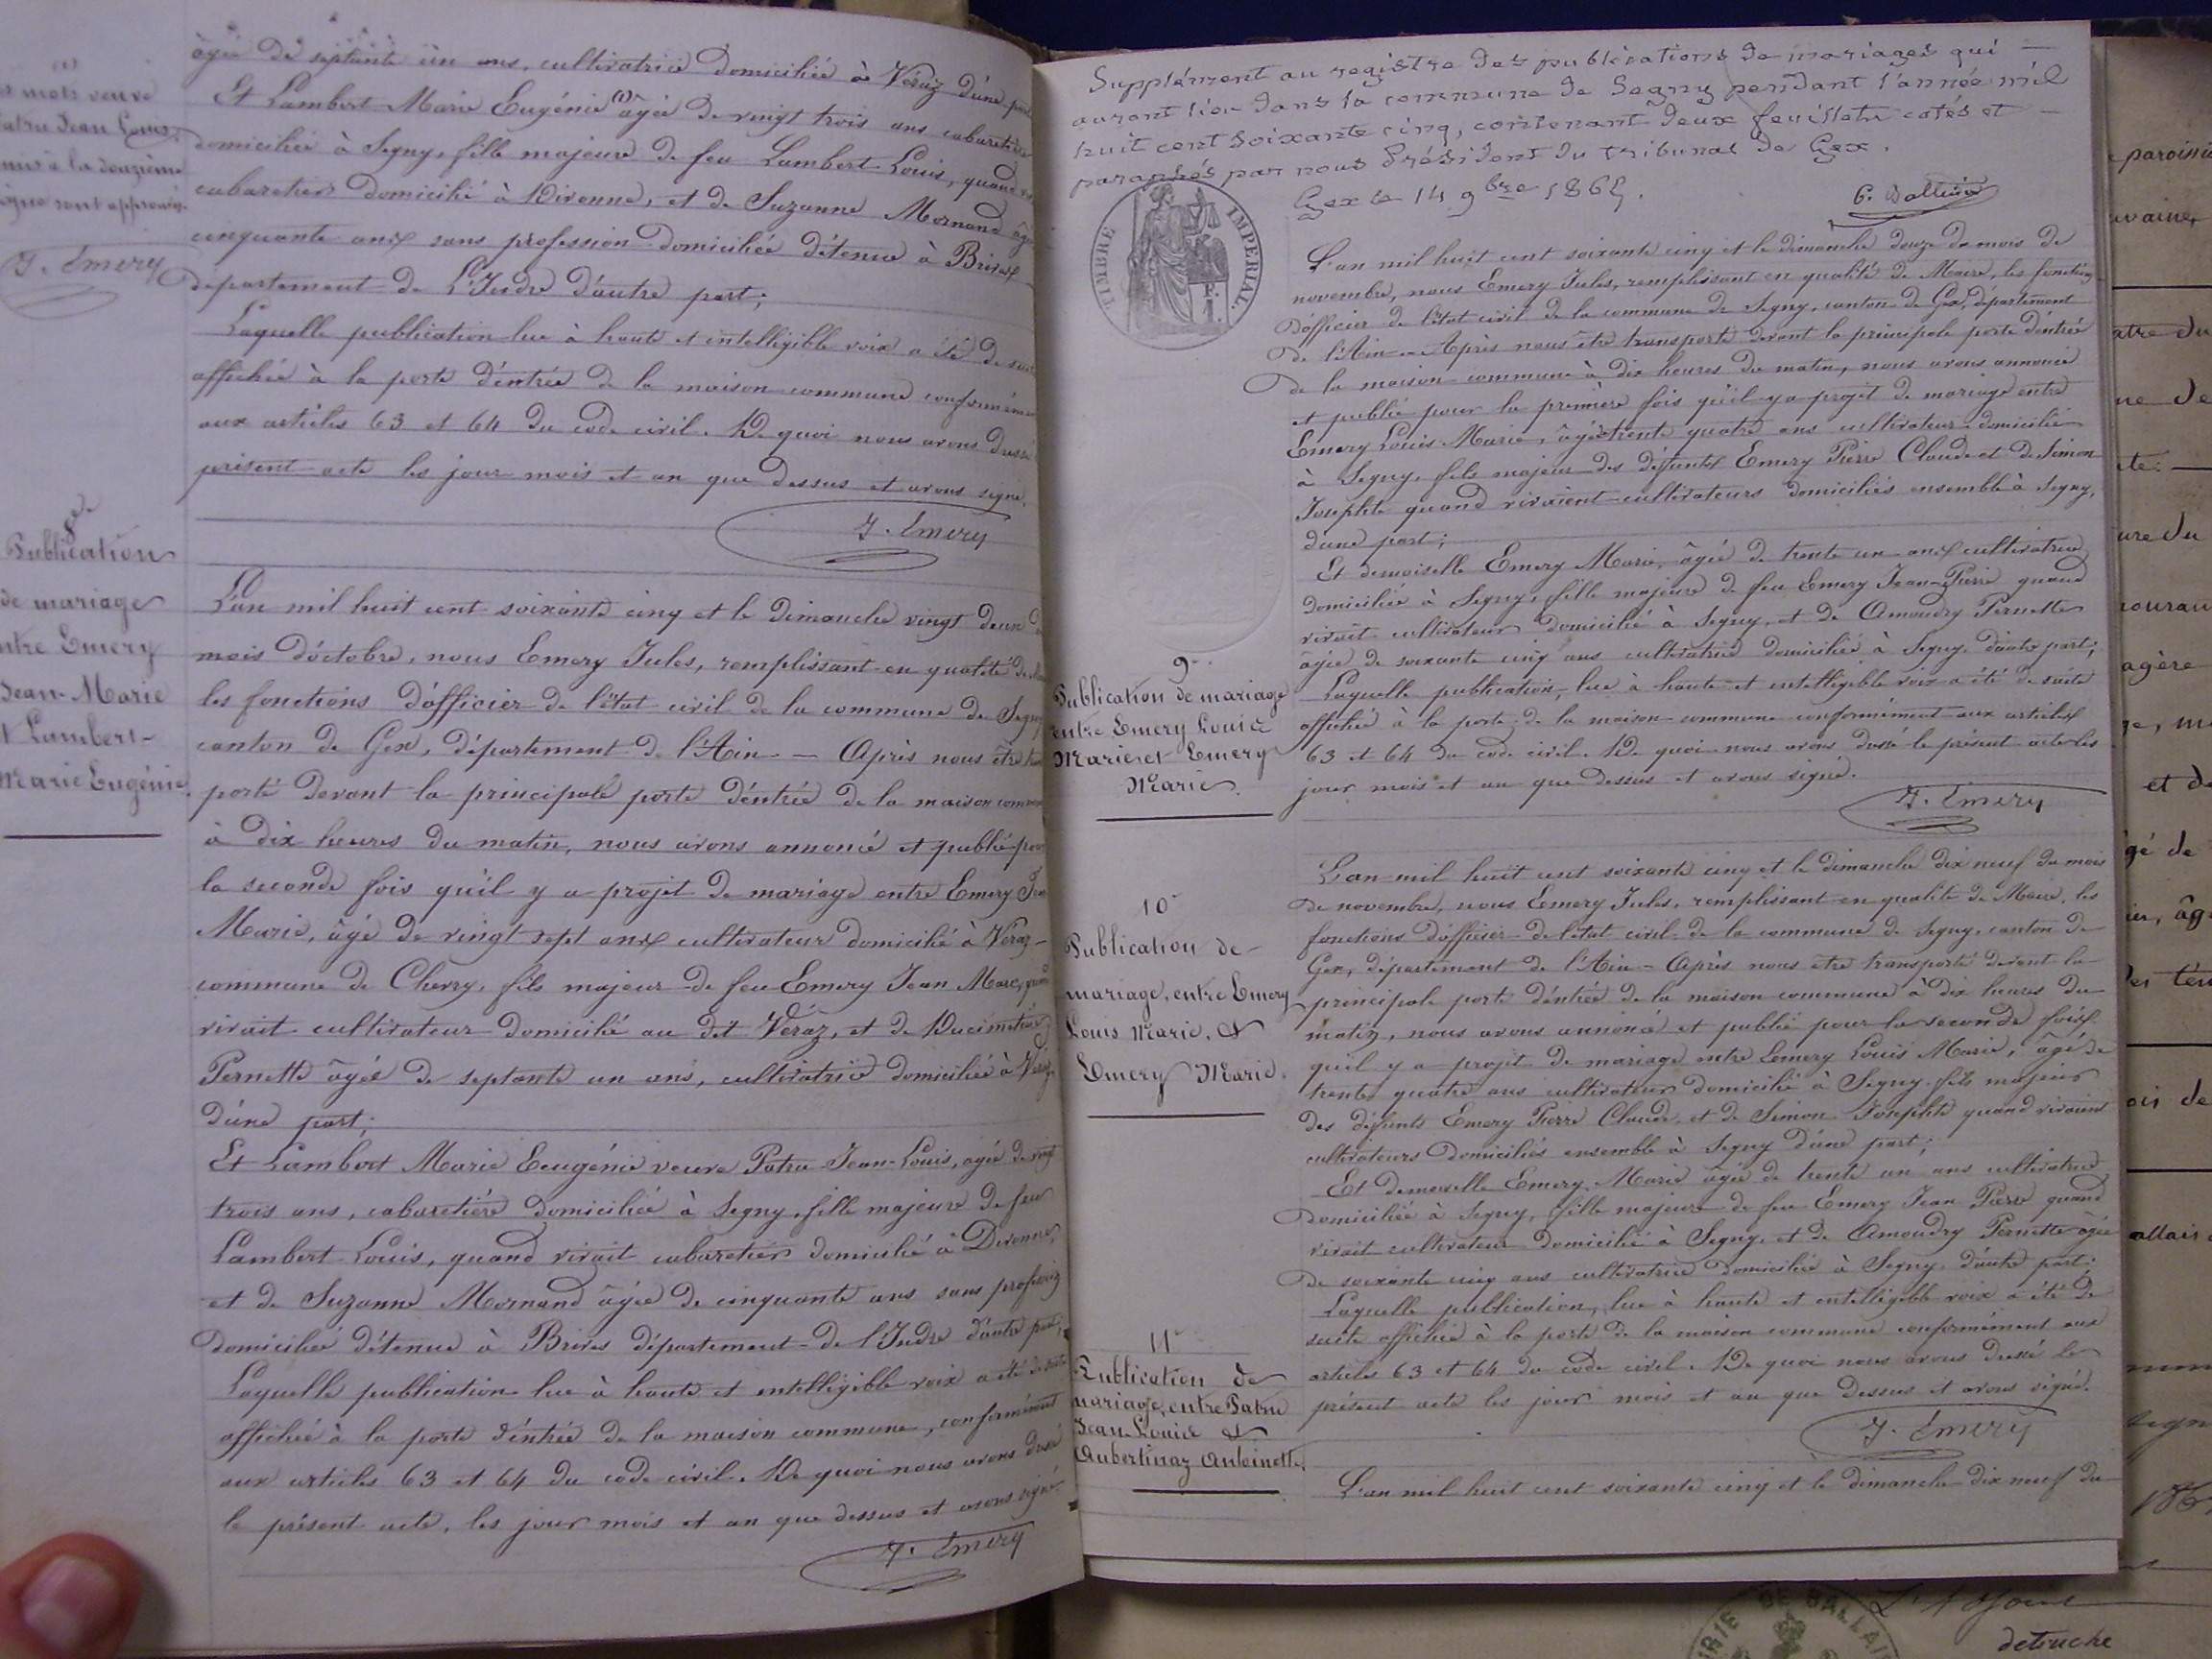 âgée de septante un ans, cultivatrice domiciliée à Véraz d'une part
Et Lambert Marie Eugénie (1) âgée de vingt trois ans cabaretière
domiciliée à Segny, fille majeure de feu Lambert Louis, quand
cabaretier domicilié à Divonne, et de Suzanne Mornand
cinquante ans sans profession domiciliée détenue à Brives
département de L'Indre d'autre part;
Laquelle publication lue à haute et intelligible voix a été de
affichée à la porte d'entrée de la maison commune conformément
aux articles 63 et 64 du code civil. De quoi nous avons dressé
présent acte les jour mois et an que dessus et avons signé.
J. Emery
(1)
mots veuve
Patru Jean Louis
à la douzième
ligne sont approuvés.
J. Emery
8e
Publication
de mariage
entre Emery
Jean-Marie
et Lambert
Marie Eugénie.
L'an mil huit cent soixante cinq et le dimanche vingt deux
mois d'octobre, nous Emery Jules, remplissant en qualité de
les fonctions d'officier de l'état civil de la commune de Segny
canton de Gex, département de l'Ain — Après nous être
porté devant la principale porte d'entrée de la maison commune
à dix heures du matin, nous avons annoncé et publié pour
la seconde fois qu'il y a projet de mariage entre Emery Jean
Marie, âgé de vingt sept ans cultivateur domicilié à Véraz
commune de Chevry, fils majeur de feu Emery Jean Marc, quand
vivait cultivateur domicilié au dit Véraz, et de Ducimetière
Pernette âgée de septante un ans, cultivatrice domiciliée à Véraz
d'une part;
Et Lambert Marie Eeugénie veuve Patru Jean-Louis, âgée de vingt
trois ans, cabaretière domiciliée à Segny, fille majeure de feu
Lambert Louis, quand vivait cabaretier domicilié à Divonne,
et de Suzanne Mornand âgée de cinquante ans sans profession
domiciliée détenue à Brives département de l'Indre d'autre part;
Laquelle publication lue à haute et intelligible voix a été de suite
affichée à la porte d'entrée de la maison commune, conformément
aux articles 63 et 64 du code civil. De quoi nous avons dressé
le présent acte, les jour mois et an que dessus et avons signé.
J. Emery
Supplément au registre des publications de mariages qui
auront lieu dans la commune de Segny pendant l'année mil
huit cent soixante cinq, contenant deux feuillets cotés et
paraphés par nous Président du tribunal de Gex.
Gex le 14 9bre 1865.
TIMBRE IMPERIAL.
L'an mil huit cent soixante cinq et le dimanche douze du mois de
novembre, nous Emery Jules, remplissant en qualité de Maire, les fonctions
d'officier de l'état civil de la commune de Segny, canton de Gex, département
de l'Ain — Après nous être transporté devant la principale porte d'entrée
de la maison commune à dix heures du matin, nous avons annoncé
et publié pour la première fois qu'il y a projet de mariage entre
Emery Louis Marie, âgé de trente quatre ans cultivateur domicilié
à Segny, fils majeur des défunts Emery Pierre Claude et de Simon
Josephte quand vivaient cultivateurs domiciliés ensemble à Segny,
d'une part;
Et demoiselle Emery Marie, âgée de trente un ans cultivatrice
domiciliée à Segny, fille majeure de feu Emery Jean-Pierre quand
vivait cultivateur domicilié à Segny, et de Amoudry Pernette
âgée de soixante cinq ans cultivatrice domiciliée à Segny d'autre part;
Laquelle publication, lue à haute et intelligible voix a été de suite
affichée à la porte de la maison commune conformément aux articles
63 et 64 du code civil. De quoi nous avons dressé le présent acte les
jour mois et an que dessus et avons signé.
J. Emery
9e
Publication de mariage
entre Emery Louis
Marie et Emery
Marie.
10e
Publication de
mariage, entre Emery
Louis Marie, &
Emery Marie.
L'an mil huit cent soixante cinq et le dimanche dix neuf du mois
de novembre, nous Emery Jules, remplissant en qualité de Maire, les
fonctions d'officier de l'état civil de la commune de Segny, canton de
Gex, département de l'Ain — Après nous être transporté devant la
principale porte d'entrée de la maison commune à dix heures du
matin, nous avons annoncé et publié pour la seconde fois
qu'il y a projet de mariage entre Emery Louis Marie, âgé de
trente quatre ans cultivateur domicilié à Segny fils majeur
des défunts Emery Pierre Claude, et de Simon Josephte quand vivaient
cultivateurs domiciliés ensemble à Segny d'une part;
Et Demoiselle Emery Marie âgée de trente un ans cultivatrice
domiciliée à Segny, fille majeure de feu Emery Jean Pierre quand
vivait cultivateur domicilié à Segny, et de Amoudry Pernette âgée
de soixante cinq ans cultivatrice domiciliée à Segny, d'autre part;
Laquelle publication, lue à haute et intelligible voix a été de
suite affichée à la porte de la maison commune conformément aux
articles 63 et 64 du code civil. De quoi nous avons dressé le
présent acte les jour mois et an que dessus et avons signé.
J. Emery
11e
Publication de
mariage, entre Patru
Jean-Louis &
Aubertinaz Antoinette.
L'an mil huit cent soixante cinq et le dimanche dix neuf du
detruche